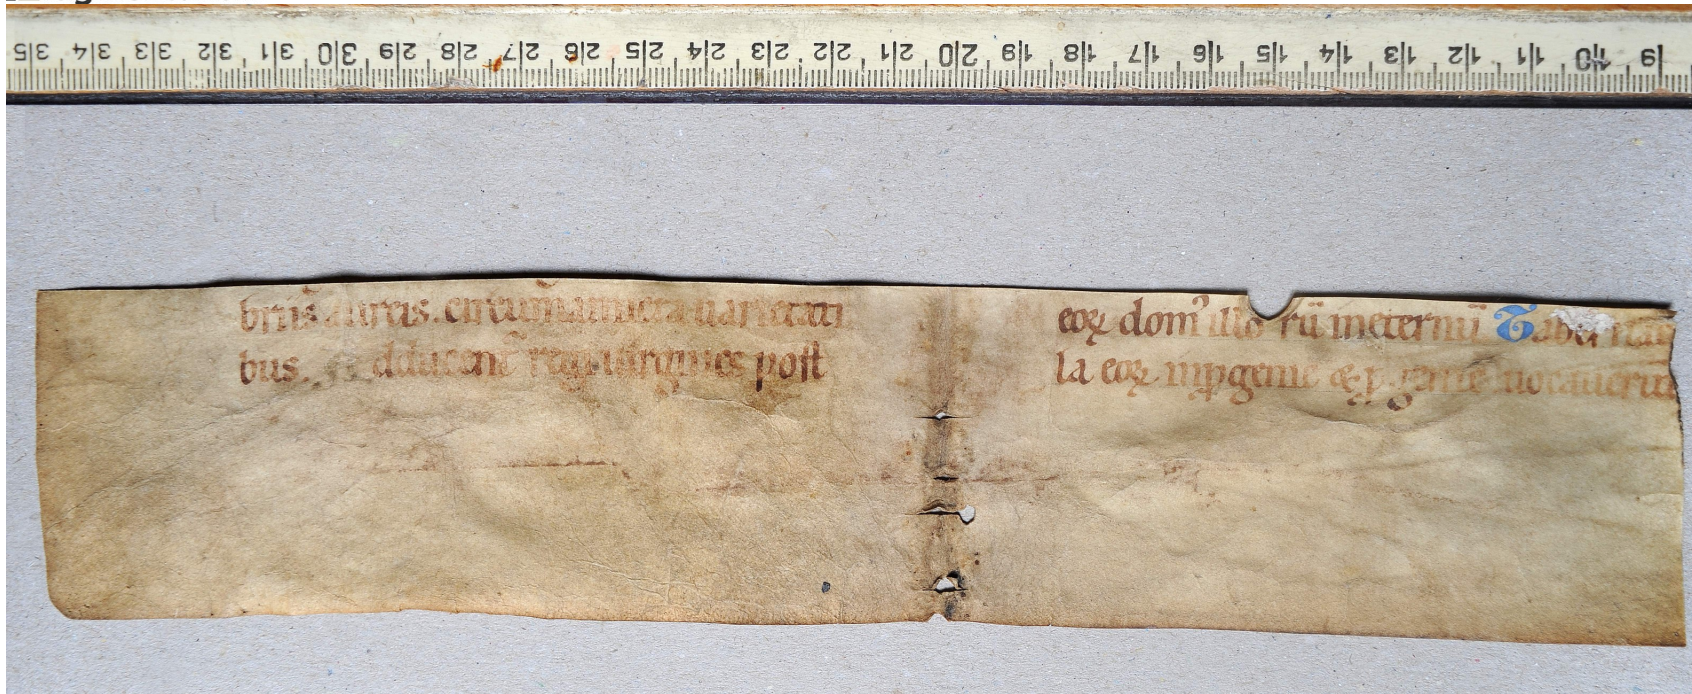 35 34 33 32 31 30 29 28 27 26 25 24 23 22 21 20 19 18 17 16 15 14 13 12 11 10 9
briis aureis. circumamicta uarietati
bus. dducent̄ regi uirgines post
eoꝝ dom illoꝝ in eternū Taberna
la eoꝝ in ꝓgenie ⁊ ꝓgenie uocauerūt